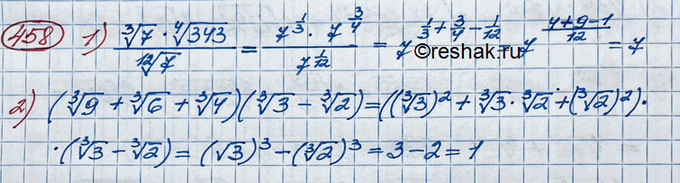 458 1) (∛7 · ∜343)/(¹²√7) = (7^(1/3) · 7^(3/4))/(7^(1/12)) = 7^(1/3 + 3/4 − 1/12) = 7^((4+9−1)/12) = 7
©reshak.ru
2) (∛9 + ∛6 + ∛4)(∛3 − ∛2) = ((∛3)² + ∛3 · ∛2 + (∛2)²) ·
· (∛3 − ∛2) = (√3)³ − (∛2)³ = 3 − 2 = 1